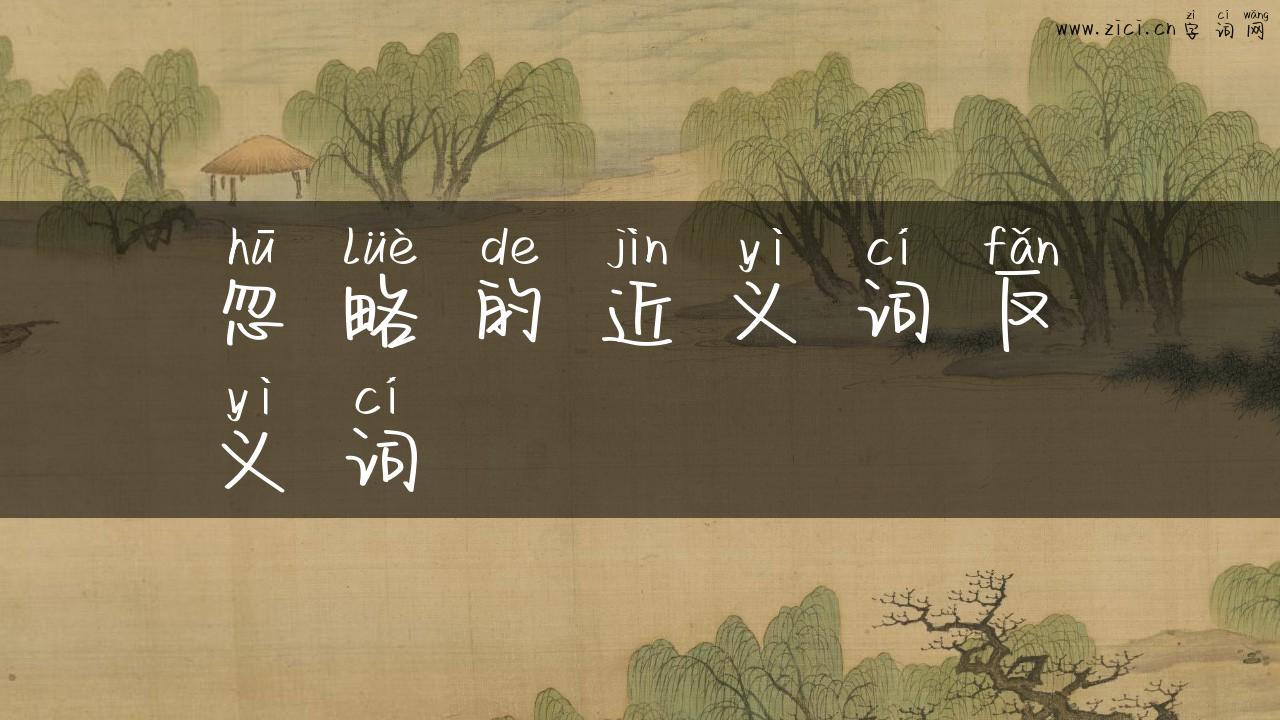 zì cí wǎng
www.zici.cn 字 词 网
hū lüè de jìn yì cí fǎn
忽 略 的 近 义 词 反
yì cí
义 词